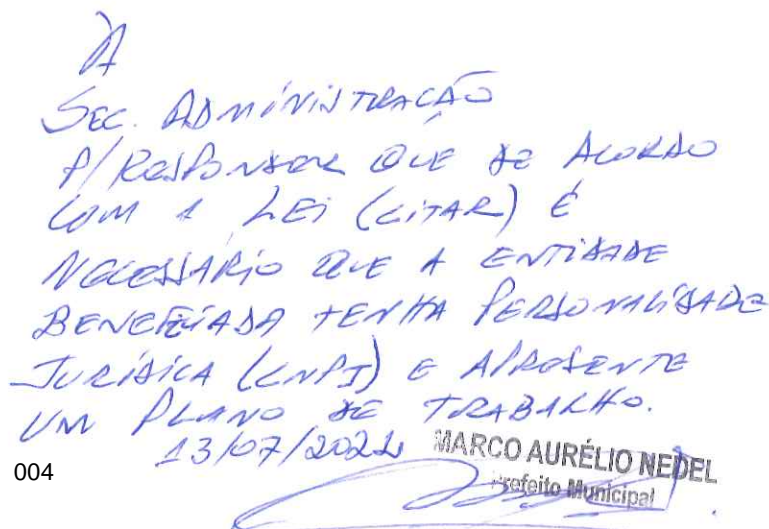 À
SEC. ADMINISTRAÇÃO
P/ RESPONDER QUE DE ACORDO
COM A LEI (CITAR) É
NECESSÁRIO QUE A ENTIDADE
BENEFICIADA TENHA PERSONALIDADE
JURÍDICA (CNPJ) E APRESENTE
UM PLANO DE TRABALHO.
13/07/2022
MARCO AURÉLIO NEDEL
Prefeito Municipal
004